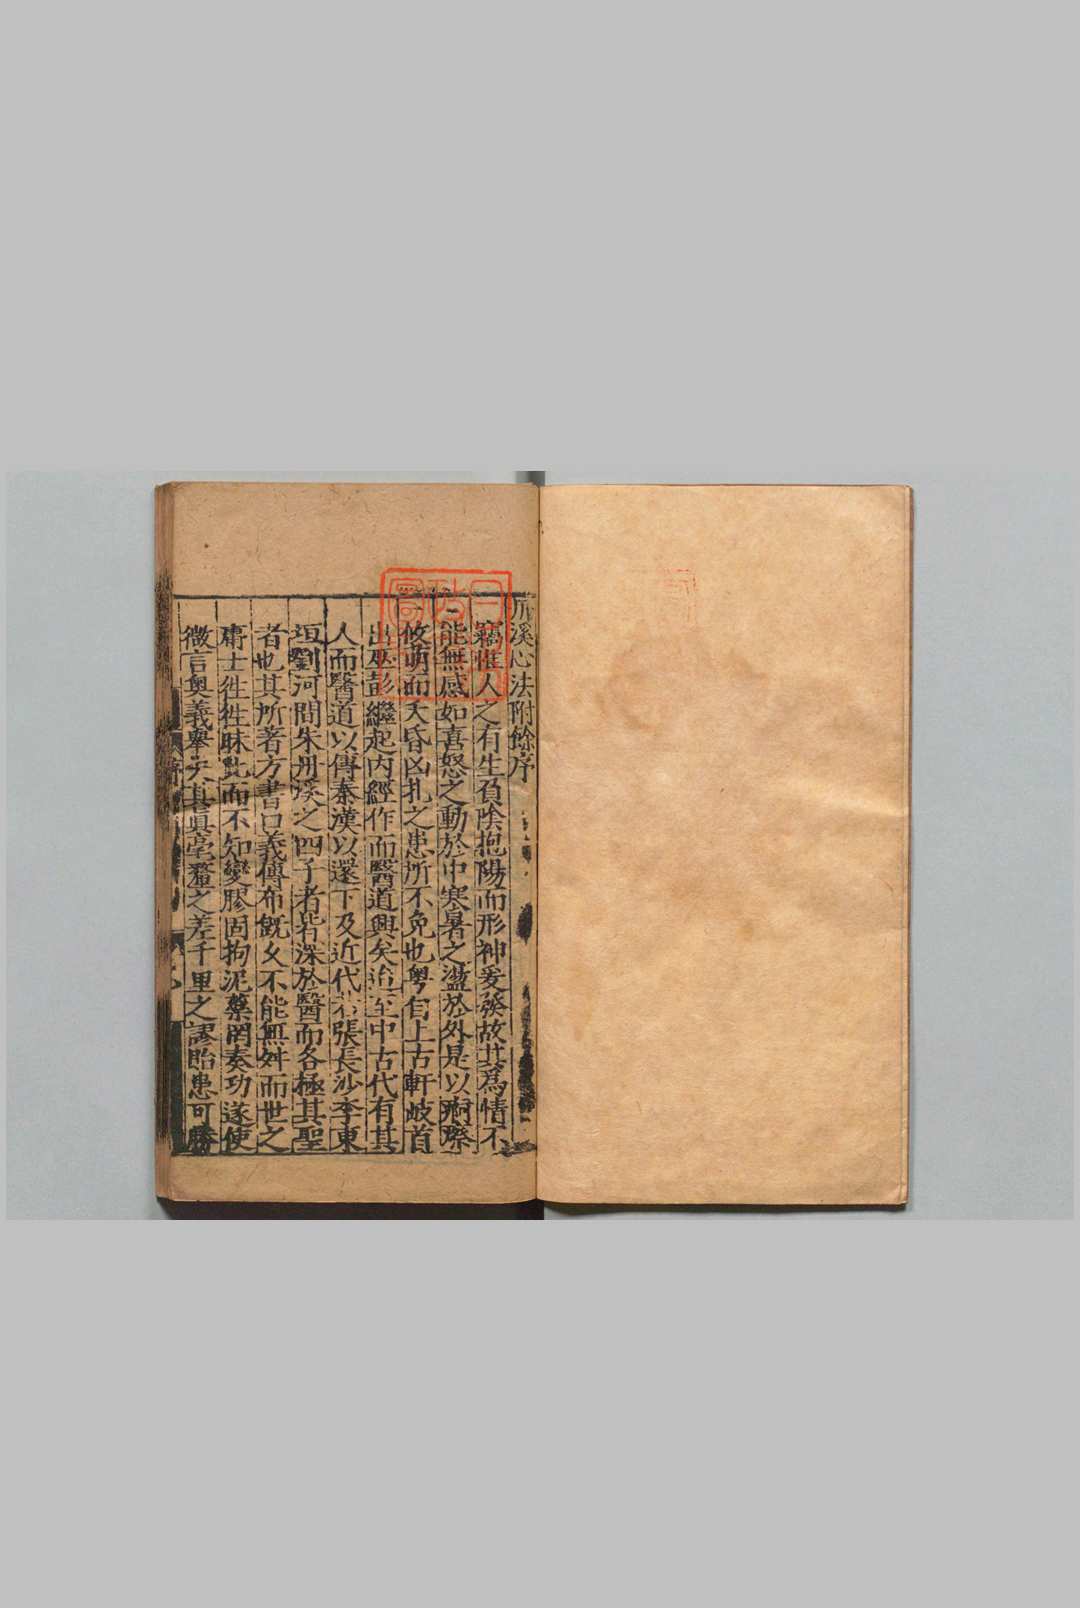 溪心法附餘序
竊惟人之有生負陰抱陽而形神爰發故其爲情不
能無感如喜怒之動於中寒暑之盪於外是以痾瘵
攸萌而夭昏凶札之患所不免也粤自上古軒岐首
出巫彭繼起内經作而醫道興矣迨至中古代有其
人而醫道以傳秦漢以還下及近代若張長沙李東
垣劉河間朱丹溪之四子者皆深於醫而各極其聖
者也其所著方書口義傳布旣久不能無舛而世之
庸士徃徃昧此而不知變膠固拘泥藥罔奏功遂使
微言奥義舉失其眞毫釐之差千里之謬貽患可勝